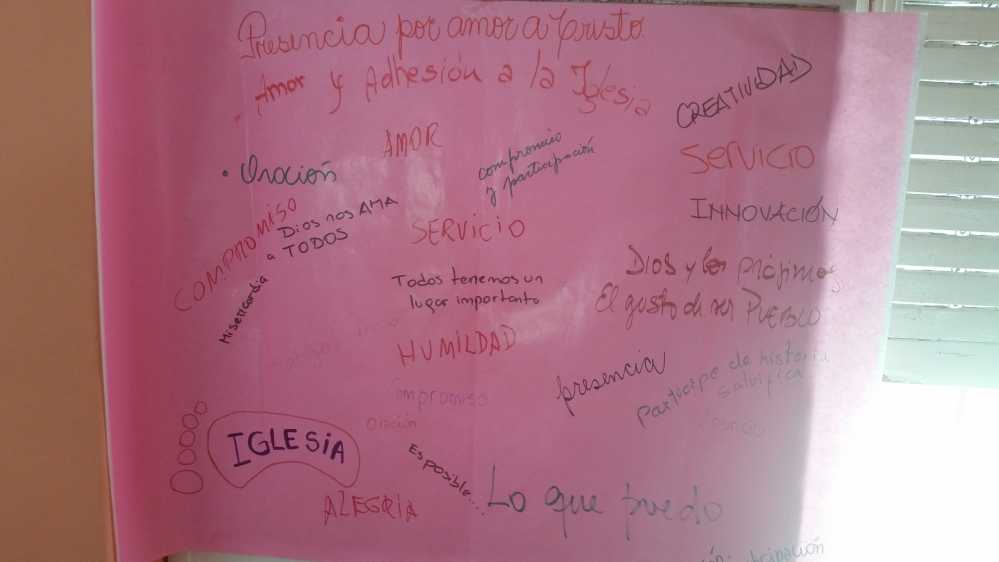 Presencia por amor a Cristo.
- Amor y Adhesión a la Iglesia
CREATIVIDAD
AMOR
compromiso
y participación
SERVICIO
• Oración
COMPROMISO
Dios nos AMA
a TODOS
Misericordia
SERVICIO
INNOVACIÓN
Todos tenemos un
lugar importante
Dios y los prójimos
El gusto de ser PUEBLO
HUMILDAD
presencia
Participe de historia
salvifica
compromiso
oración
IGLESIA
Es posible....
ALEGRIA
Lo que puedo